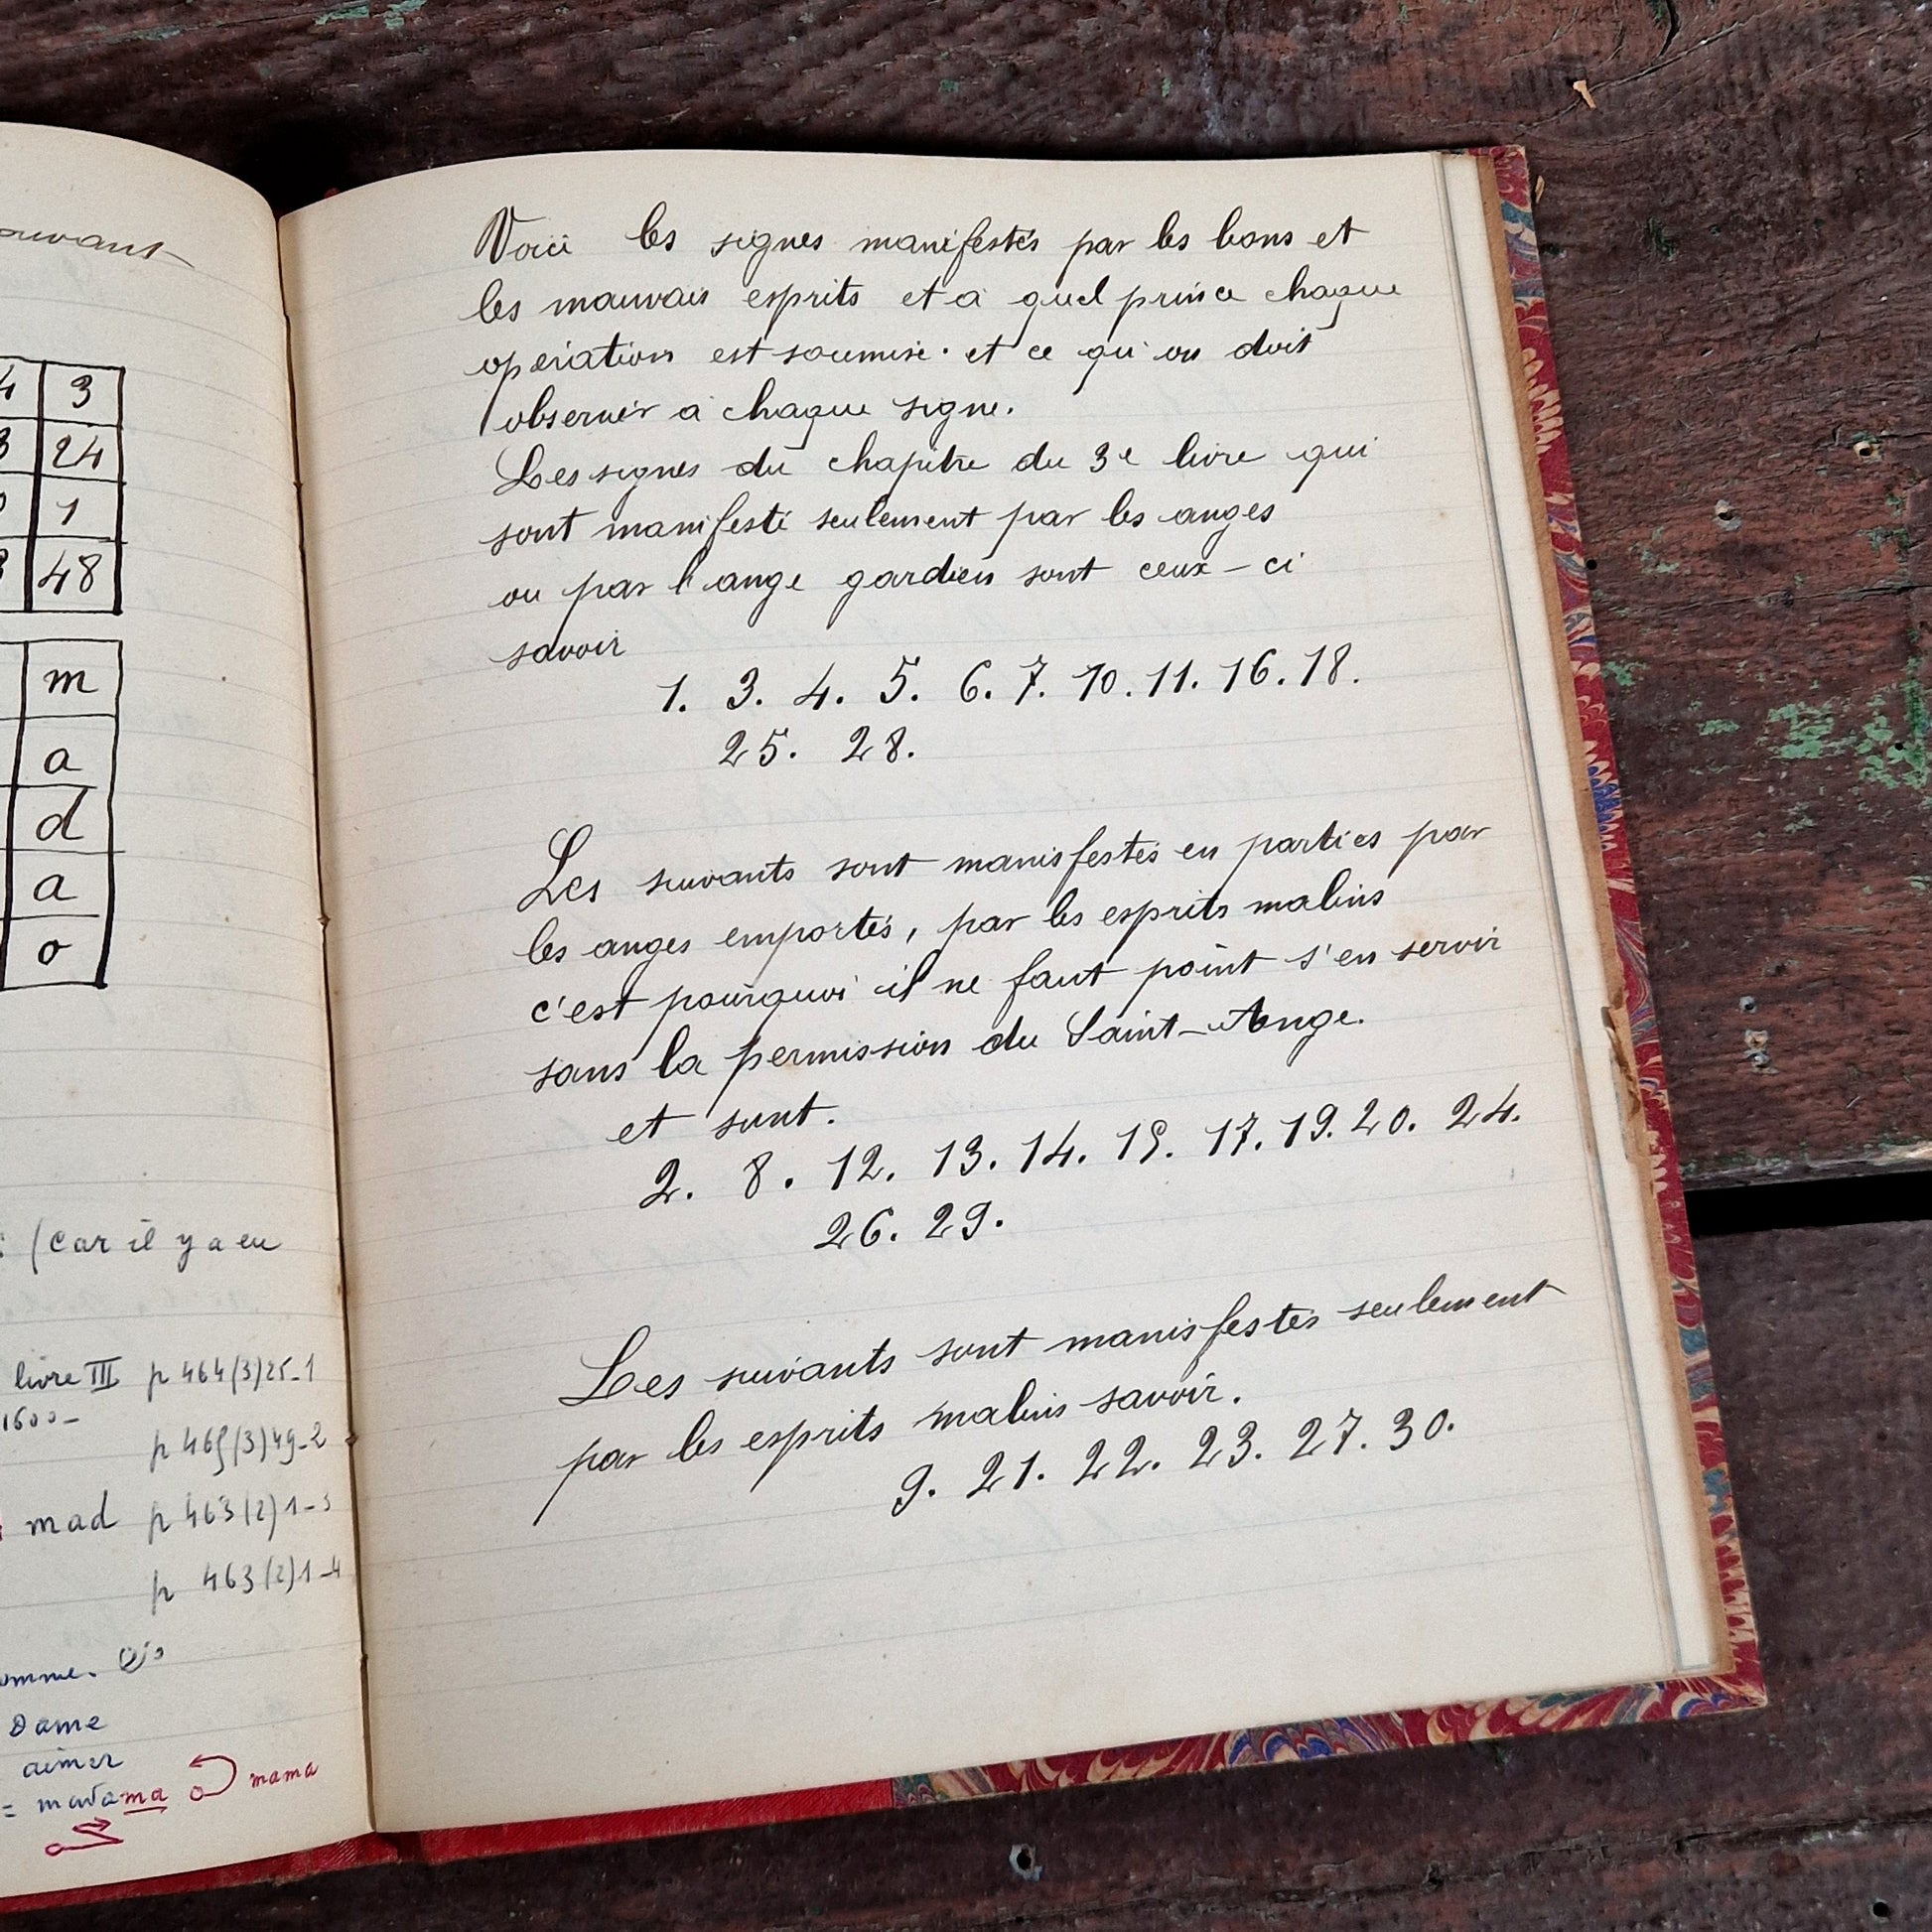 4 3
24
1
48
m
a
d
a
o
(car il y a eu
livre III p 464(3)25-1
1600-
p 465(3)49-2
mad p 463(2)1-3
p 463(2)1-4
Dame
aimer
= madama mama
Voici les signes manifestés par les bons et
les mauvais esprits et à quel prince chaque
opération est soumise. et ce qu'on doit
observer à chaque signe.
Les signes du chapitre du 3e livre qui
sont manifesté seulement par les anges
ou par l'ange gardien sont ceux-ci
savoir
1. 3. 4. 5. 6. 7. 10. 11. 16. 18.
25. 28.
Les suivants sont manisfestés en parties par
les anges emportés, par les esprits malins
c'est pourquoi il ne faut point s'en servir
sans la permission du Saint-Ange.
et sont.
2. 8. 12. 13. 14. 15. 17. 19. 20. 24.
26. 29.
Les suivants sont manisfestés seulement
par les esprits malins savoir.
9. 21. 22. 23. 27. 30.